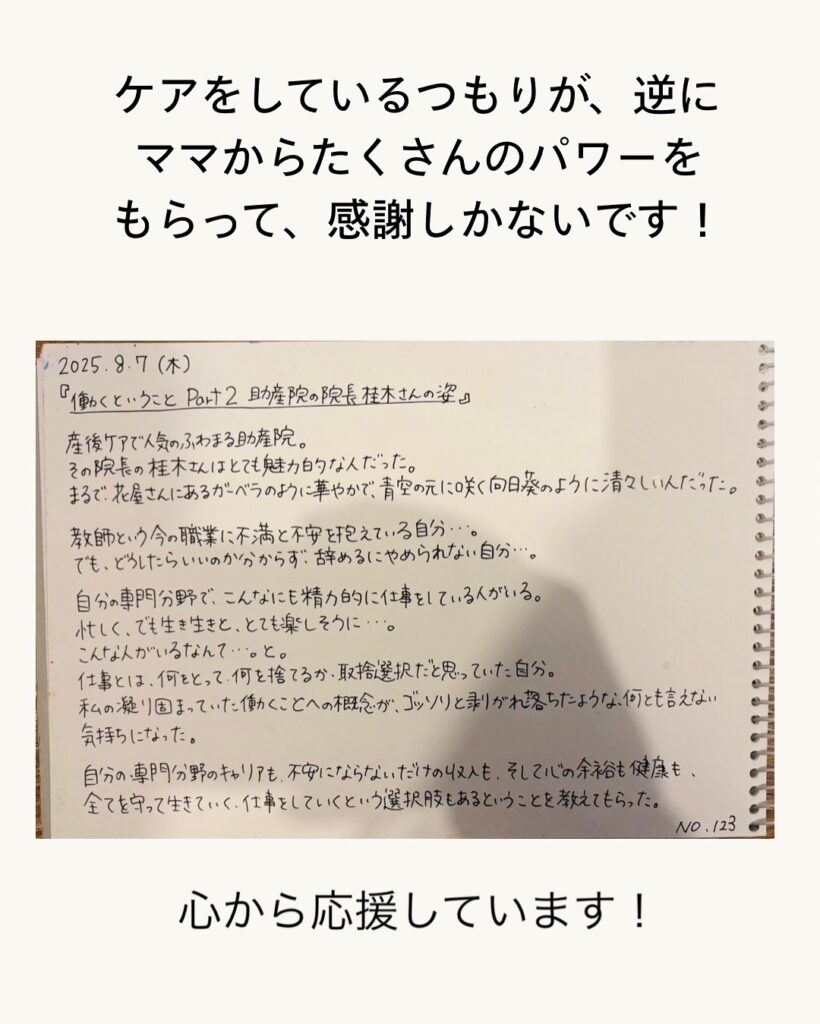 ケアをしているつもりが、逆に
ママからたくさんのパワーを
もらって、感謝しかないです！
2025.8.7（木）
『働くということ Part2 助産院の院長桂木さんの姿』
産後ケアで人気のふわまる助産院。
その院長の桂木さんはとても魅力的な人だった。
まるで、花屋さんにあるガーベラのように華やかで、青空の元に咲く向日葵のように清々しい人だった。
教師という今の職業に不満と不安を抱えている自分…。
でも、どうしたらいいのか分からず、辞めるにやめられない自分…。
自分の専門分野で、こんなにも精力的に仕事をしている人がいる。
忙しく、でも生き生きと、とても楽しそうに…。
こんな人がいるなんて…。と。
仕事とは、何をとって、何を捨てるか、取捨選択だと思っていた自分。
私の凝り固まっていた働くことへの概念が、ゴッソリと剥がれ落ちたような、何とも言えない
気持ちになった。
自分の専門分野のキャリアも、不安にならないだけの収入も、そして心の余裕も健康も、
全てを守って生きていく、仕事をしていくという選択肢もあるということを教えてもらった。
NO.123
心から応援しています！